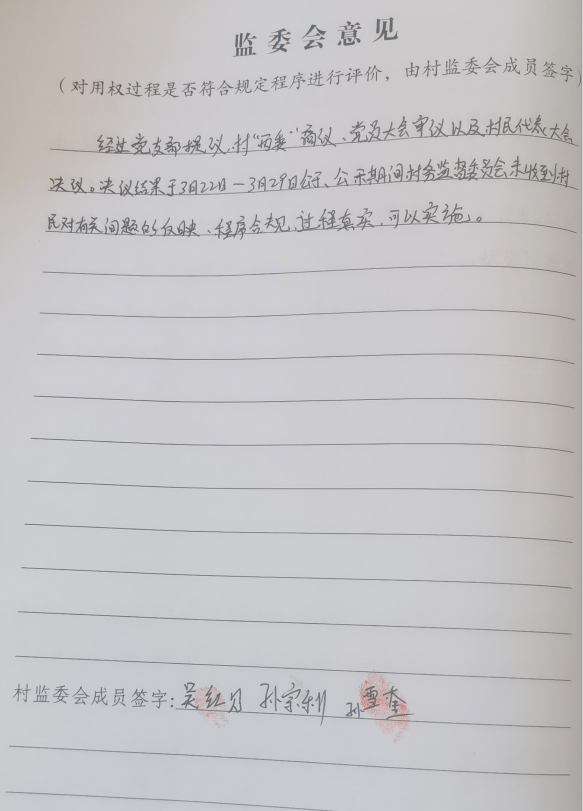 监委会意见
（对用权过程是否符合规定程序进行评价，由村监委会成员签字）
经过党支部提议、村“两委”商议、党员大会审议以及村民代表大会
决议。决议结果于3月22日－3月29日公示、公示期间村务监督委员会未收到村
民对有关问题的反映、程序合规、过程真实，可以实施。
村监委会成员签字：吴红 孙宗利 孙雪奎